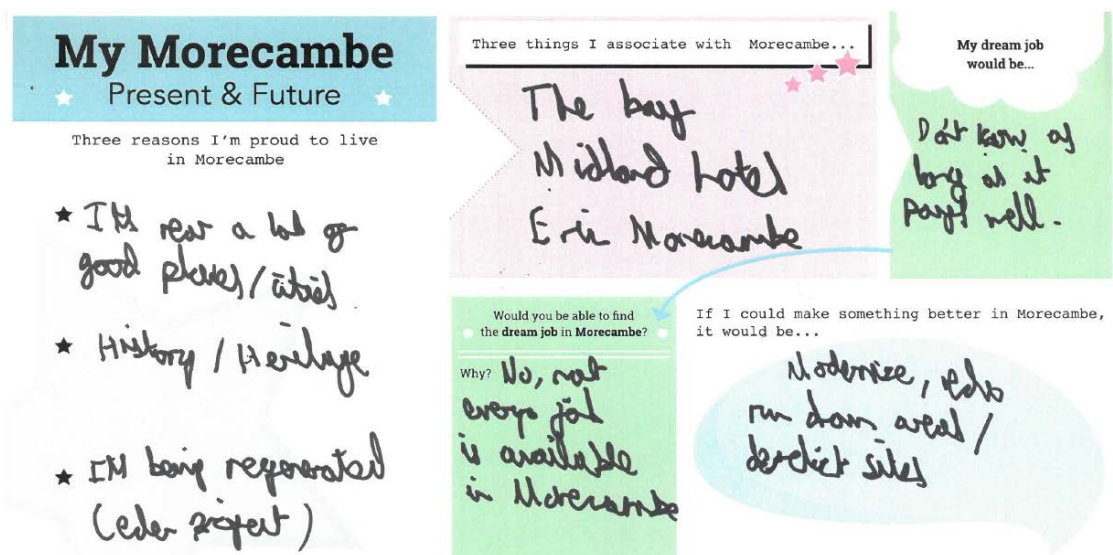 My Morecambe
Present & Future
Three reasons I'm proud to live
in Morecambe
It's near a lot of
good places/cities
History / Heritage
It's being regenerated
(eden project)
Three things I associate with Morecambe...
The bay
Midland hotel
Eric Morecambe
My dream job
would be...
Don't know as
long as it
pays well.
Would you be able to find
the dream job in Morecambe?
Why? No, not
every job
is available
in Morecambe
If I could make something better in Morecambe,
it would be...
Modernise,
run down areas/
derelict sites